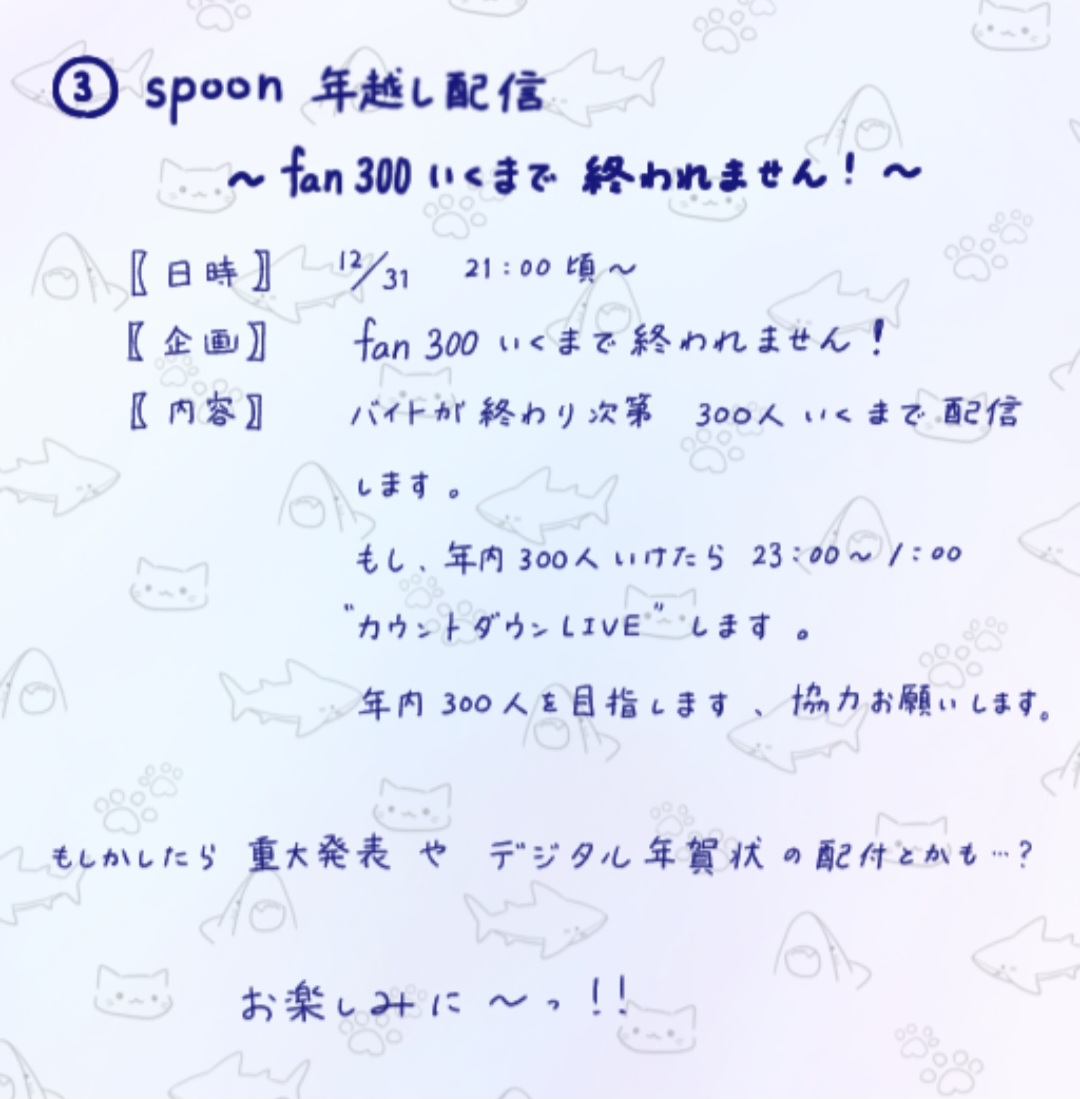 ③ spoon 年越し配信
～ fan 300 いくまで 終われません！～
〖日時〗 12/31 21:00 頃～
〖企画〗 fan 300 いくまで終われません！
〖内容〗 バイトが終わり次第 300人いくまで配信
します。
もし、年内300人いけたら 23:00～1:00
"カウントダウンLIVE" します。
年内300人を目指します、協力お願いします。
もしかしたら 重大発表 や デジタル年賀状の配付とかも…?
お楽しみに～っ!!